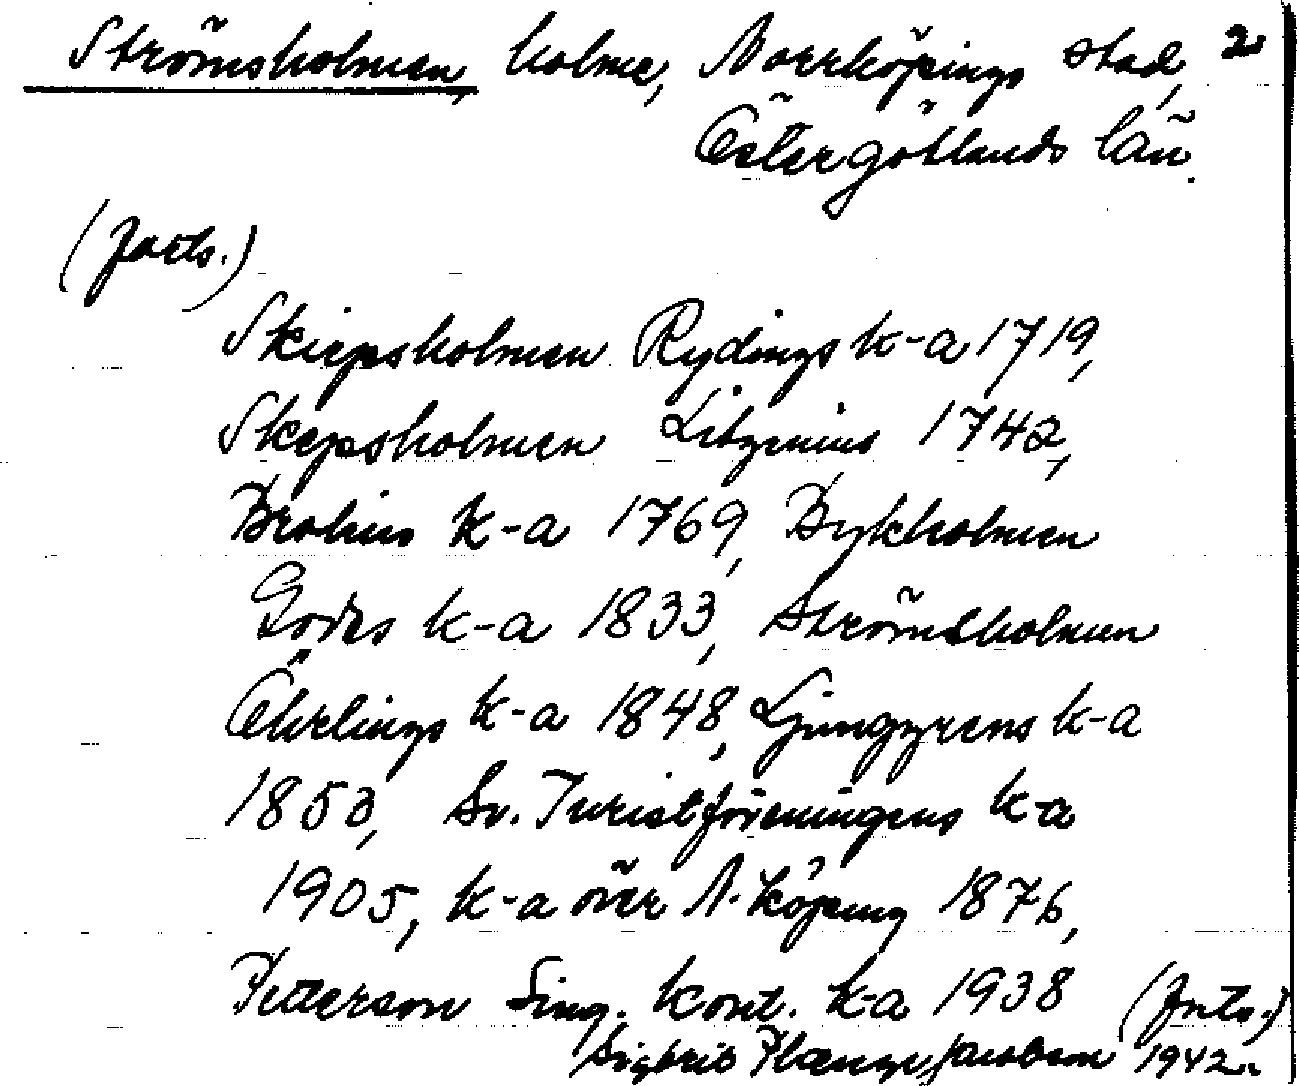 Strömsholmen, holme, Norrköpings stad, 2
Östergötlands län.
(forts.)
Skiepsholmen Rydings k-a 1719,
Skepsholmen Litzenius 1742,
Brolins k-a 1769, Bykholmen
Godes k-a 1833, Strömsholmen
Öhrlings k-a 1848, Ljunggrens k-a
1853, Sv. Turistföreningens k-a
1905, k-a över N.köping 1876,
Petterson Sing. kont. k-a 1938 (forts.)
Sigbrit Plænge Jacobson 1942.